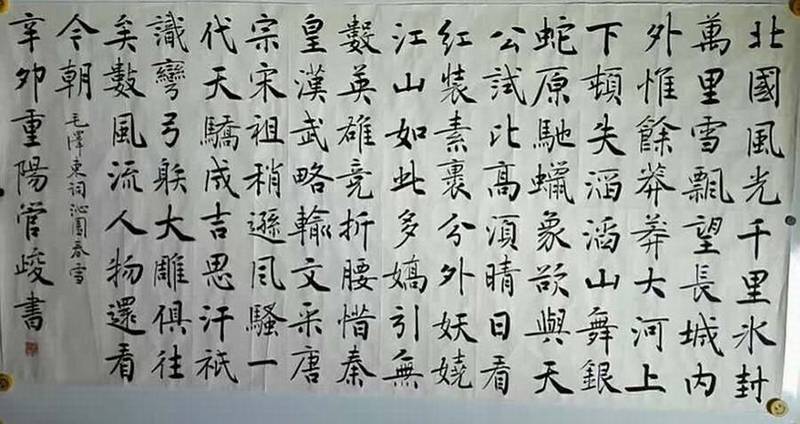 北國風光千里氷封
萬里雪飄望長城内
外惟餘莽莽大河上
下頓失滔滔山舞銀
蛇原馳蠟象欲與天
公試比高須晴日看
紅裝素裹分外妖嬈
江山如此多嬌引無
數英雄竞折腰惜秦
皇漢武略輸文采唐
宗宋祖稍遜風騷一
代天驕成吉思汗祇
識彎弓䠶大雕俱往
矣數風流人物還看
今朝
毛澤東詞沁園春雪
辛卯重陽管峻書